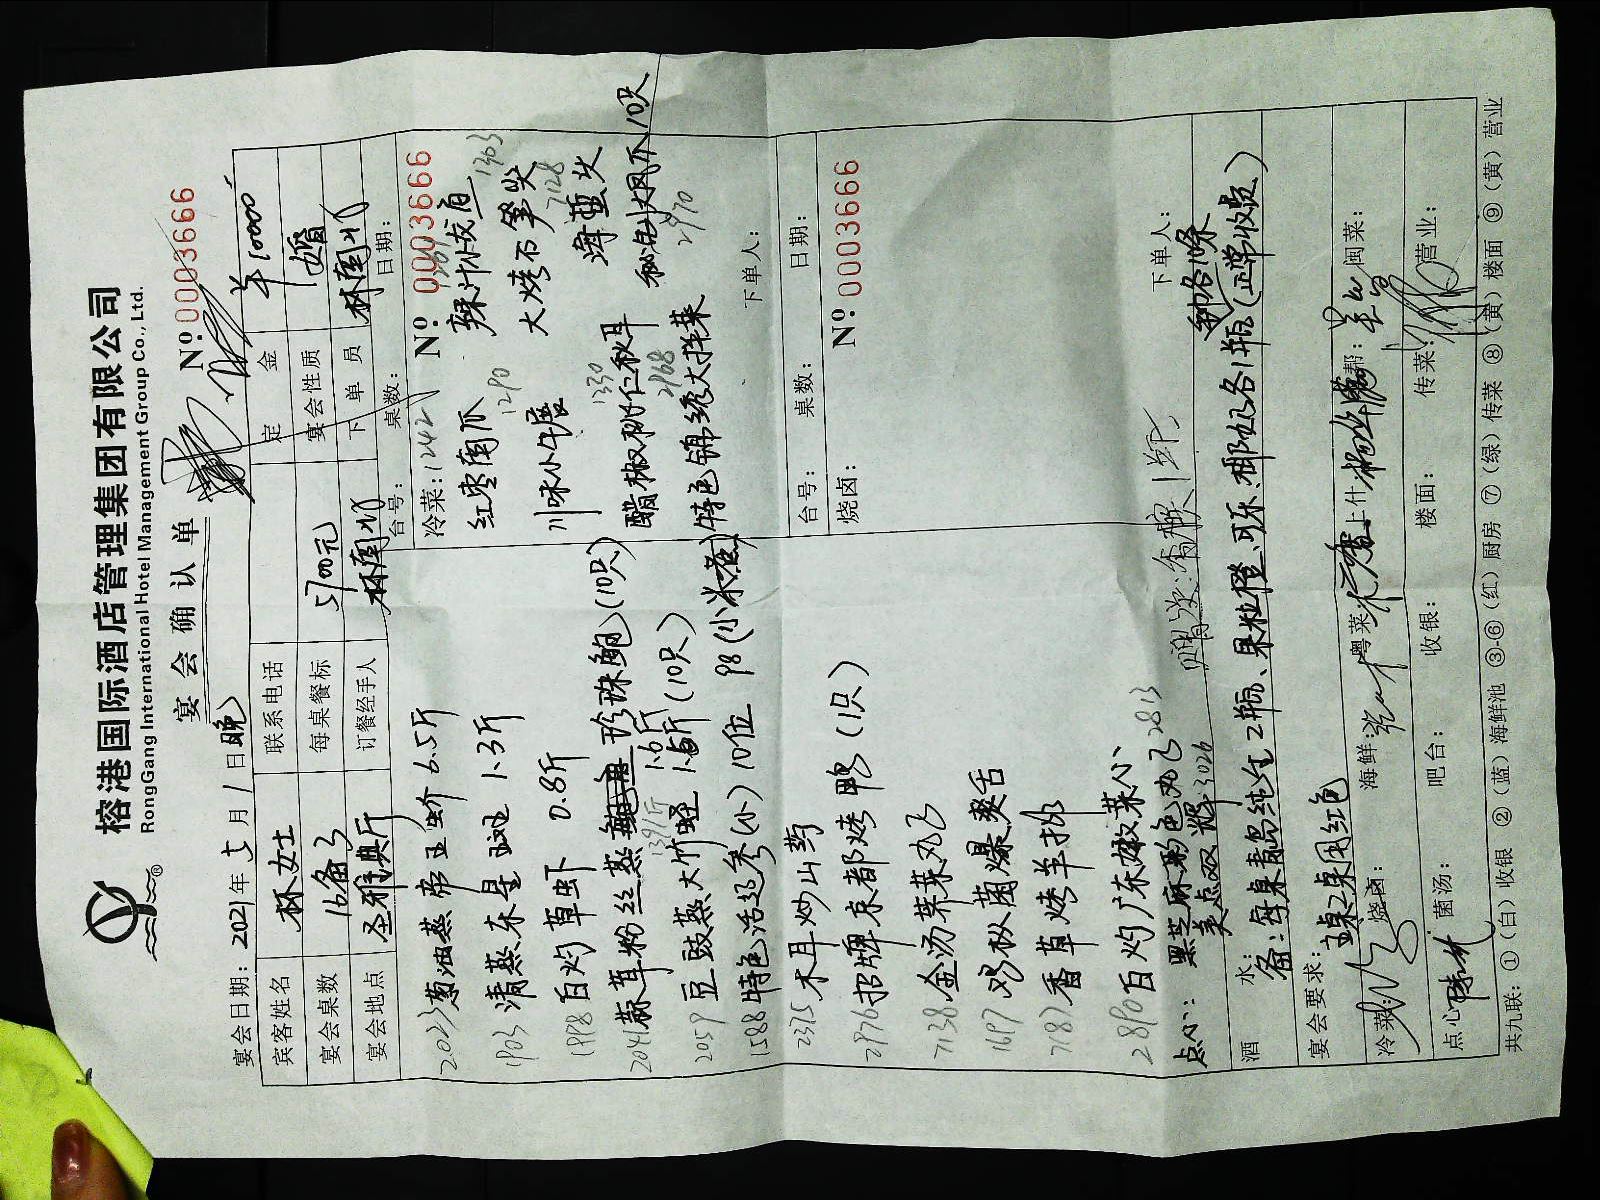 榕港国际酒店管理集团有限公司
RongGang International Hotel Management Group Co., Ltd.
宴会确认单
№ 0003666
宴会日期：2021年5月1日晚
宾客姓名 林女士 联系电话 定金 ¥10000
宴会桌数 16备2 每桌餐标 5700元 宴会性质 婚
宴会地点 圣雅典厅 订餐经手人 下单员
台号： 桌数： 日期：
2023 葱油蒸帝王蚧 6.5斤
1903 清蒸东星斑 1.3斤
1998 白灼草虾 0.8斤
2041 蒜茸粉丝蒸珍珠鲍（10只）
2059 豆豉蒸大竹蛏 1.6斤（10只）
1588 特色活辽参（小）10位 98（小米煮）
2315 木耳炒山药
2976 招牌京都烤鸭（1只）
7138 金汤荠菜丸
1697 鸡枞菌爆爽舌
7187 香草烤羊排
2890 白灼广东嫩菜心
冷菜：1242 № 0003666
红枣南瓜 1290
辣汁伐渔 1303
川味小牛展
大烤石笋尖 7128
醋椒桃仁秋耳 1330
海蜇头
特色锦绣大拌菜 2968
秘制大凤爪10只 2970
下单人：
台号： 桌数： 日期：
烧卤： № 0003666
下单人：
点心： 黑芝麻彩色丸 2813
美点双辉 3026
酒水： 备：每桌青岛纯生2瓶、果粒橙、可乐、椰奶各1瓶（正常收费）
宴会要求： 主桌2桌用红色
冷菜： 烧卤： 海鲜： 粤菜： 上什： 帮： 闽菜：
点心： 菌汤： 吧台： 收银： 楼面： 传菜： 营业：
共九联：①（白）收银 ②（蓝）海鲜池 ③-⑥（红）厨房 ⑦（绿）传菜 ⑧（黄）楼面 ⑨（黄）营业